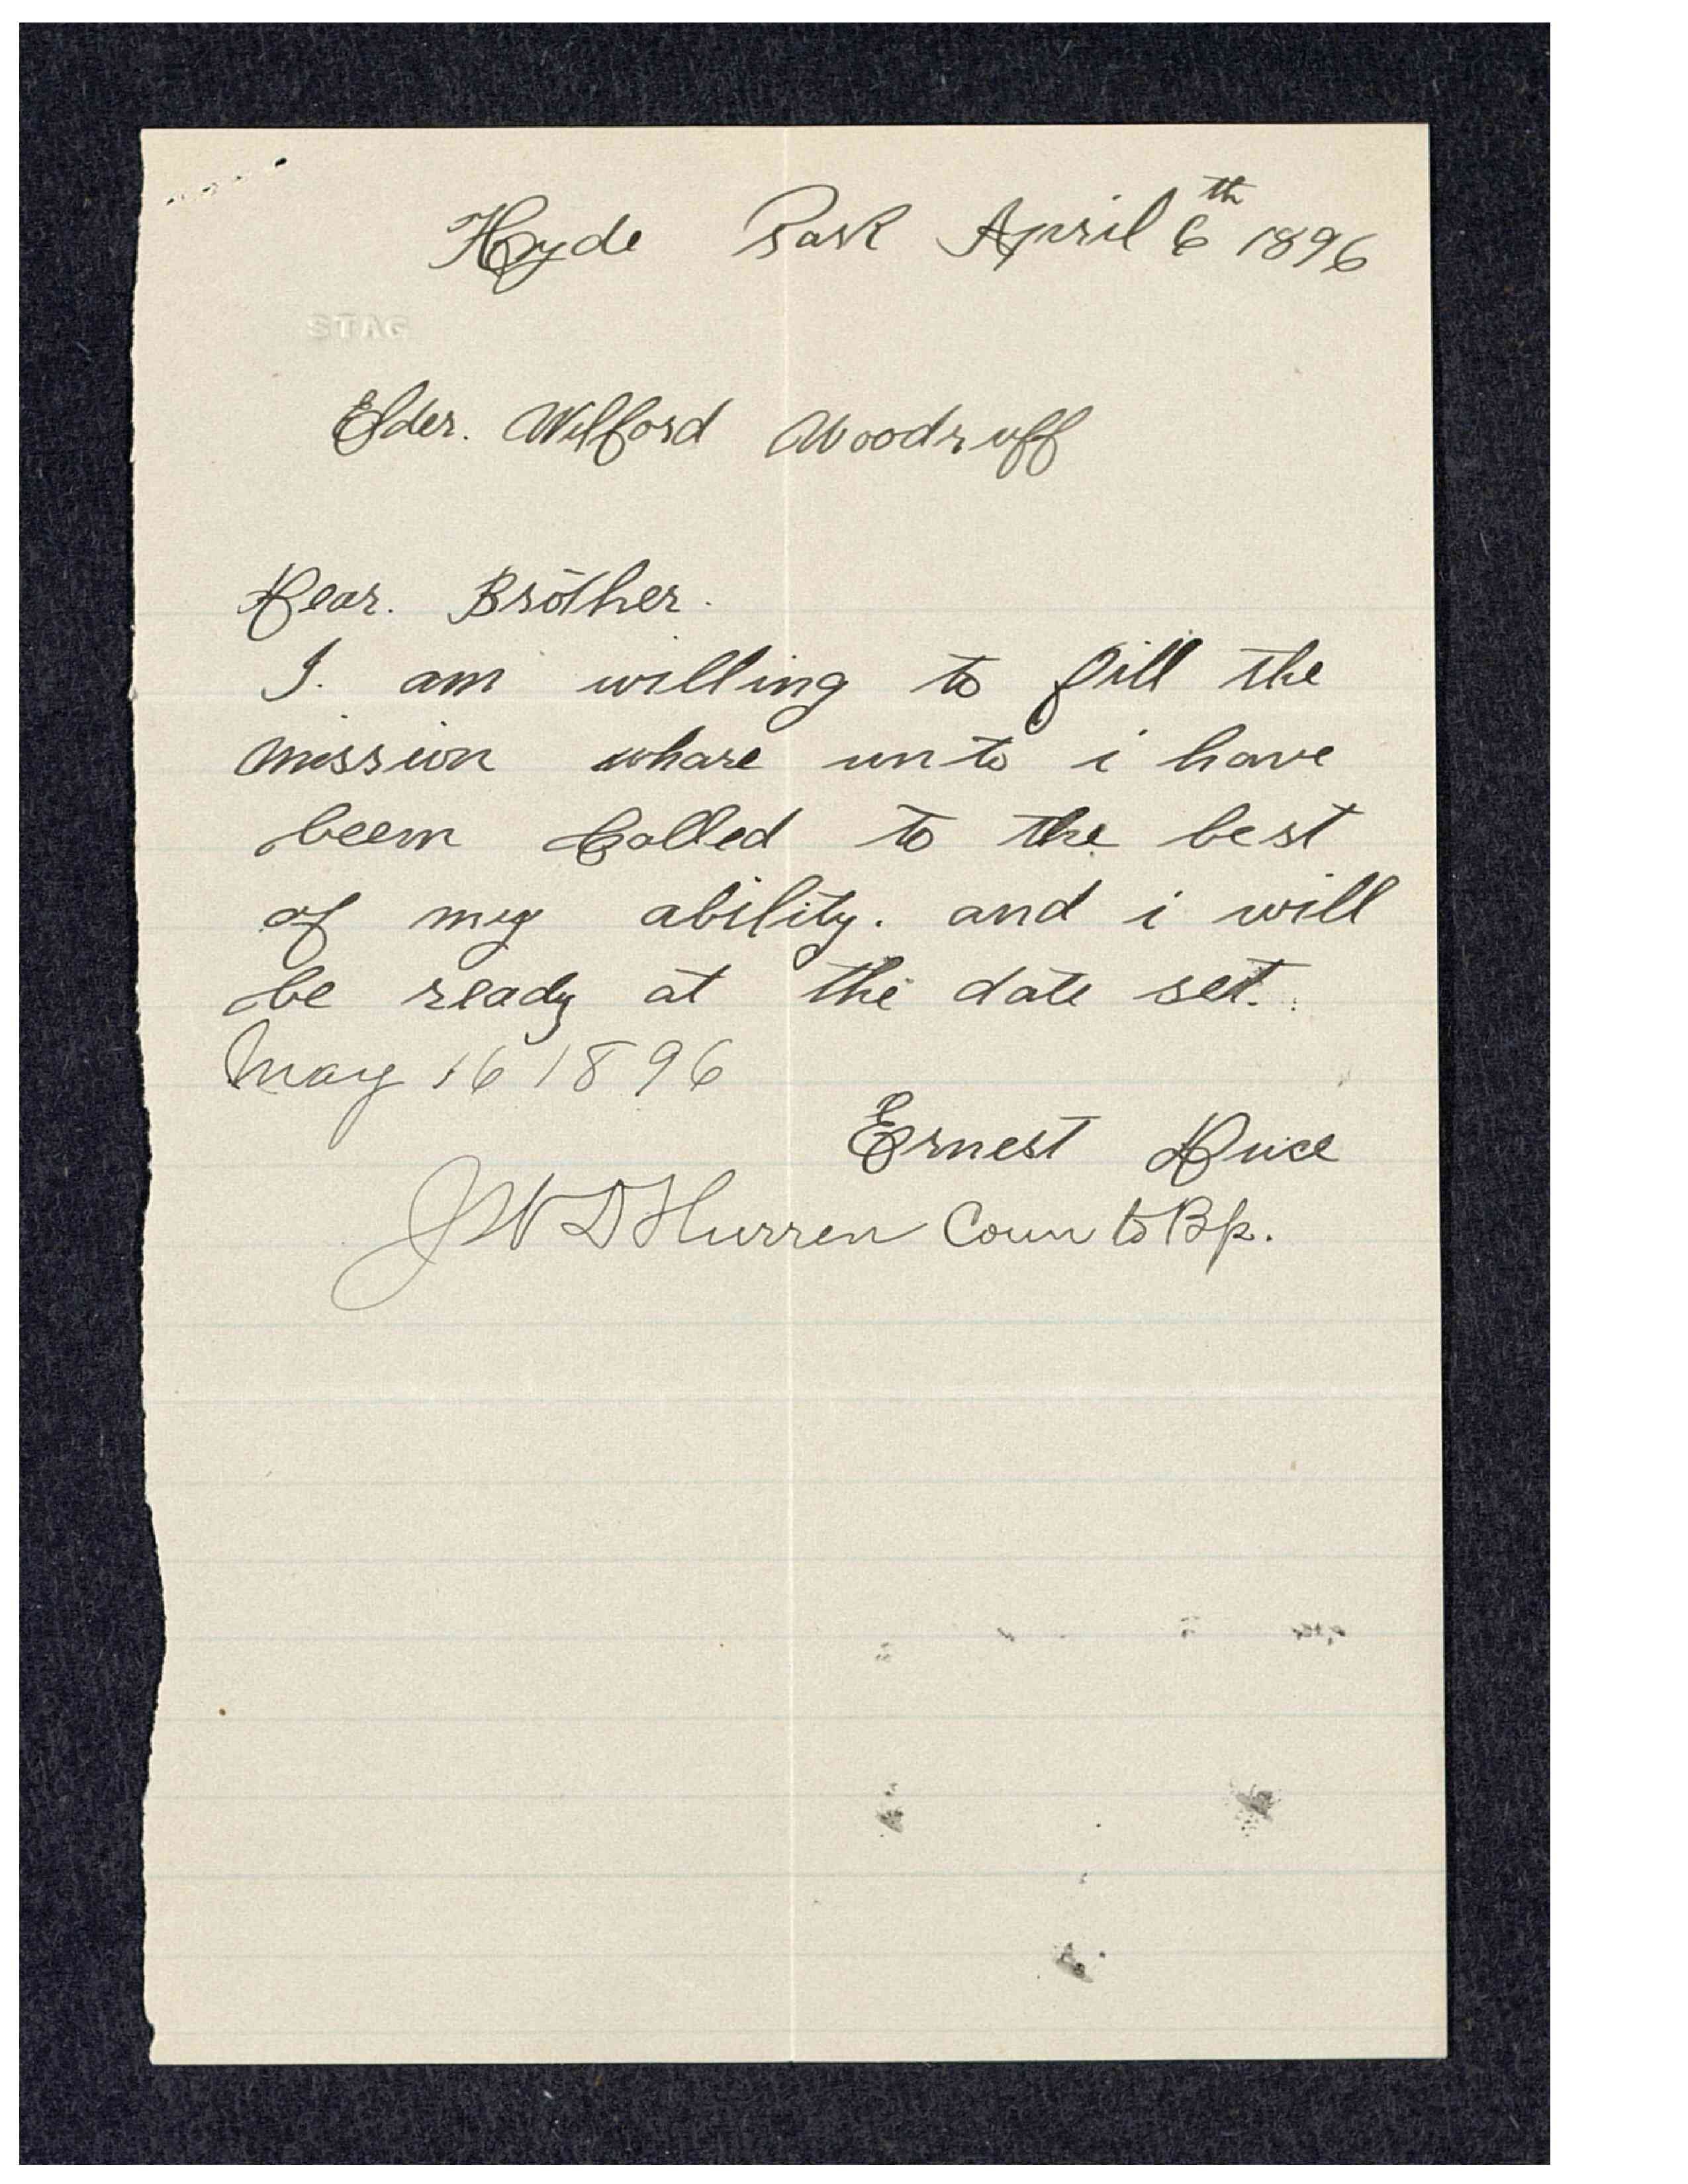 Hyde Park April 6th 1896
STAG
Elder. Wilford Woodruff
Dear. Brother.
I. am willing to fill the
mission whare unto i have
beem Called to the best
of my ability. and i will
be ready at the date set.
May 16 1896
Ernest Duce
J W D Hurren Coun to Bp.